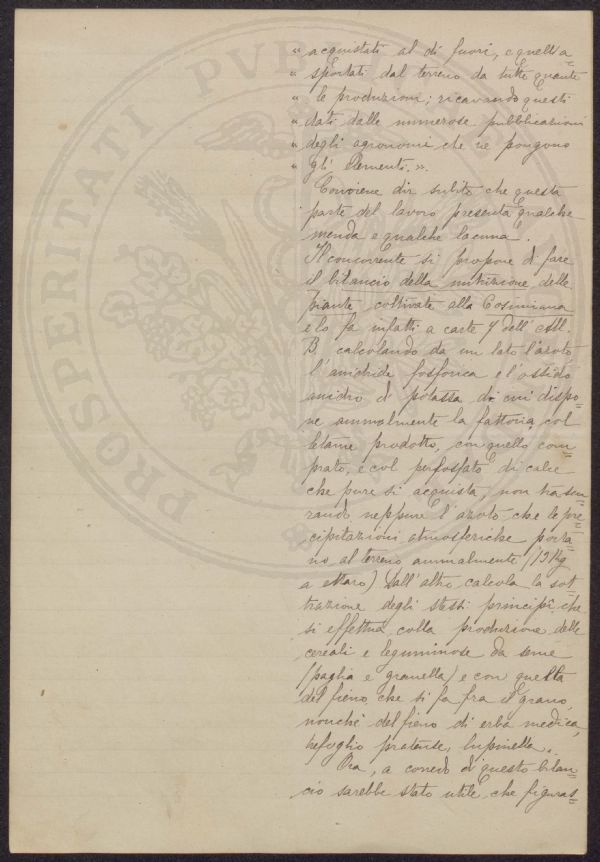 PROSPERITATI PVBLI
" acquistati al di fuori, e quelli a=
" sportati dal terreno da tutte quante
" le produzioni; ricavando questi
" dati dalle numerose pubblicazioni
" degli agronomi che ne pongono
" gli elementi.".
Conviene dir subito che questa
parte del lavoro presenta qualche
menda e qualche lacuna.
Il concorrente si propone di fare
il bilancio della nutrizione delle
piante coltivate alla Cosimiana
e lo fa infatti a carte 7 dell'All.
B. calcolando da un lato l'azoto,
l'anidride fosforica e l'ossido
anidro di potassa di cui dispo=
ne annualmente la fattoria col
letame prodotto, con quello com=
prato, e col perfosfato di calce
che pure si acquista, non trascu=
rando neppure l'azoto che le pre=
cipitazioni atmosferiche porta=
no al terreno annualmente (19 Kg
a ettaro) Dall'altro calcola la sot=
trazione degli stessi principî che
si effettua colla produzione delle
cereali e leguminose da seme
(paglia e granella) e con quella
del fieno che si fa fra il grano,
nonchè del fieno di erba medica,
trefoglio pratense, lupinella.
Ora, a corredo di questo bilan=
cio sarebbe stato utile che figuras=